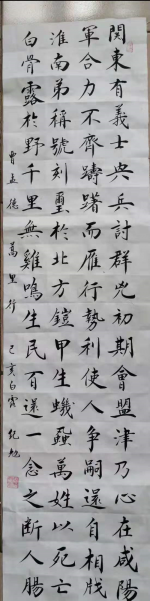 関東有義士興兵討群兇初期會盟津乃心在咸陽
軍合力不齊躊躇而雁行勢利使人爭嗣還自相戕
淮南弟稱號刻璽於北方鎧甲生蟣蝨萬姓以死亡
白骨露於野千里無雞鳴生民百遺一念之斷人腸
曹孟德 蒿里行 己亥白露